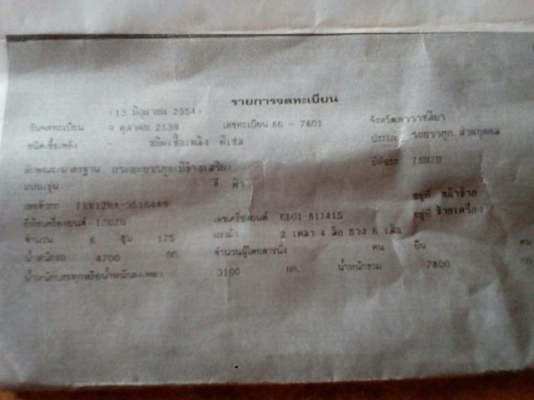 รายการจดทะเบียน
(13 มิถุนายน 2554)
วันจดทะเบียน 9 ตุลาคม 2539 เลขทะเบียน 86 - 7801 จังหวัด
ชนิดเชื้อเพลิง ดีเซล ประเภท รถบรรทุก ส่วนบุคคล
ลักษณะ/มาตรฐาน ยี่ห้อรถ ISUZU
แบบ/รุ่น สี ฟ้า
เลขตัวรถ อยู่ที่ หน้าซ้าย
ยี่ห้อเครื่องยนต์ ISUZU เลขเครื่องยนต์ 6BD1-811415 อยู่ที่ ซ้ายเครื่อง
จำนวน 6 สูบ 175 แรงม้า 2 เพลา 4 ล้อ ยาง 6 เส้น
น้ำหนักรถ 4700 กก. จำนวนผู้โดยสารนั่ง คน ยืน คน
น้ำหนักบรรทุกหรือน้ำหนักลงเพลา 3100 กก. น้ำหนักรวม 7800 กก.